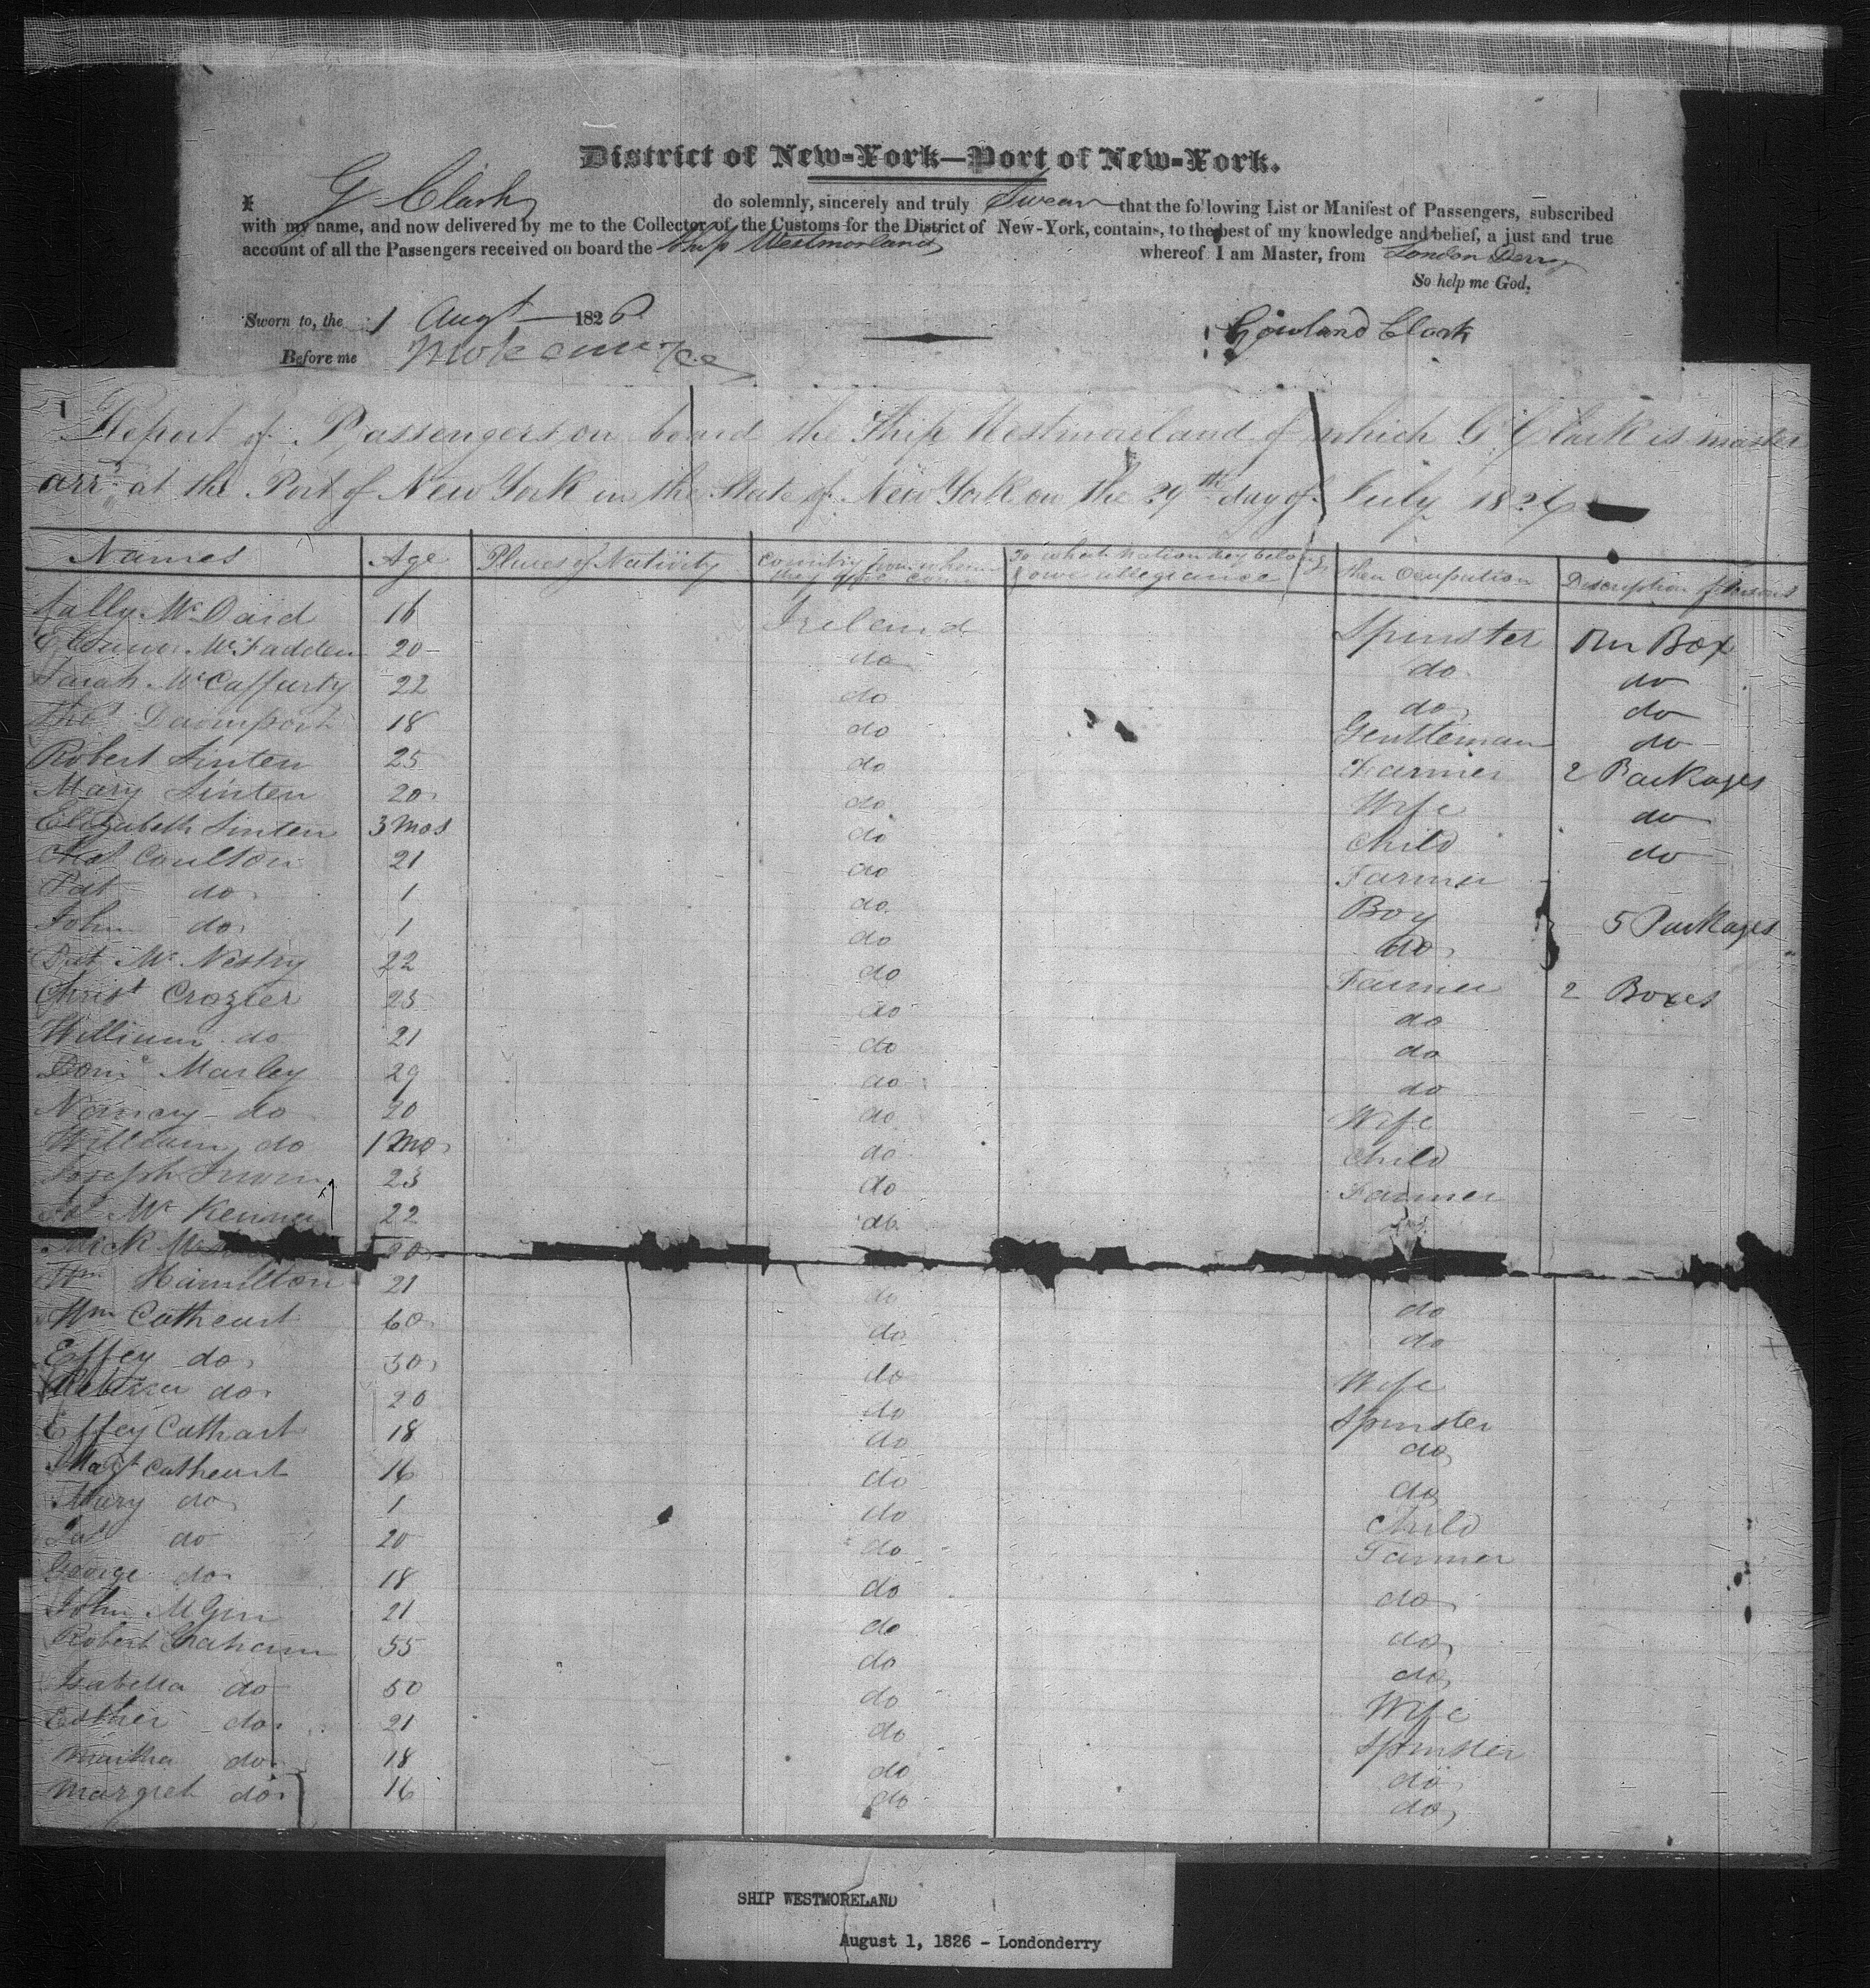 District of New-York—Port of New-York.
I G Clark do solemnly, sincerely and truly Swear that the following List or Manifest of Passengers, subscribed
with my name, and now delivered by me to the Collector of the Customs for the District of New-York, contains, to the best of my knowledge and belief, a just and true
account of all the Passengers received on board the Ship Westmorland whereof I am Master, from London Derry
So help me God,
Sworn to, the 1 Augt 1826
Gowland Clark
Before me
Report of Passengers on board the Ship Westmorland of which G. Clark is master
arr at the Port of New York in the State of New York on the 29th day of July 1826
Names Age Places of Nativity Country from whence they came To what Nation they belong & owe allegiance Their Ocupation Description of
Sally McDaid 16 Ireland Spinster One Box
Eleanor McFadden 20 do do do
Sarah McCafferty 22 do do do
Thos Davenport 18 do Gentleman do
Robert Linten 25 do Farmer 2 Packages
Mary Linten 20 do Wife do
Elizabeth Linten 3 Mos do Child do
Coulton 21 do Farmer
Pat do 1 do Boy 5 Packages
John do 1 do do
Pat Mc Nestry 22 do Farmer 2 Boxes
Christ Crozier 23 do do
William do 21 do do
Marley 29 do do
Nancy do 20 do Wife
William do 1 Mo do Child
Joseph Irwin 23 do Farmer
Mc Kenna 22 do
20
Wm Hamilton 21 do do
Wm Cathcart 60 do do
Effey do 50 do Wife
Rebecca do 20 do Spinster
Effey Cathcart 18 do do
Magt Cathcart 16 do do
Mary do 1 do Child
do 20 do Farmer
George do 18 do do
John McGinn 21 do do
Robert Graham 55 do do
Isabella do 50 do Wife
Esther do 21 do Spinster
Martha do 18 do do
Margret do 16 do do
SHIP WESTMORELAND
August 1, 1826 - Londonderry